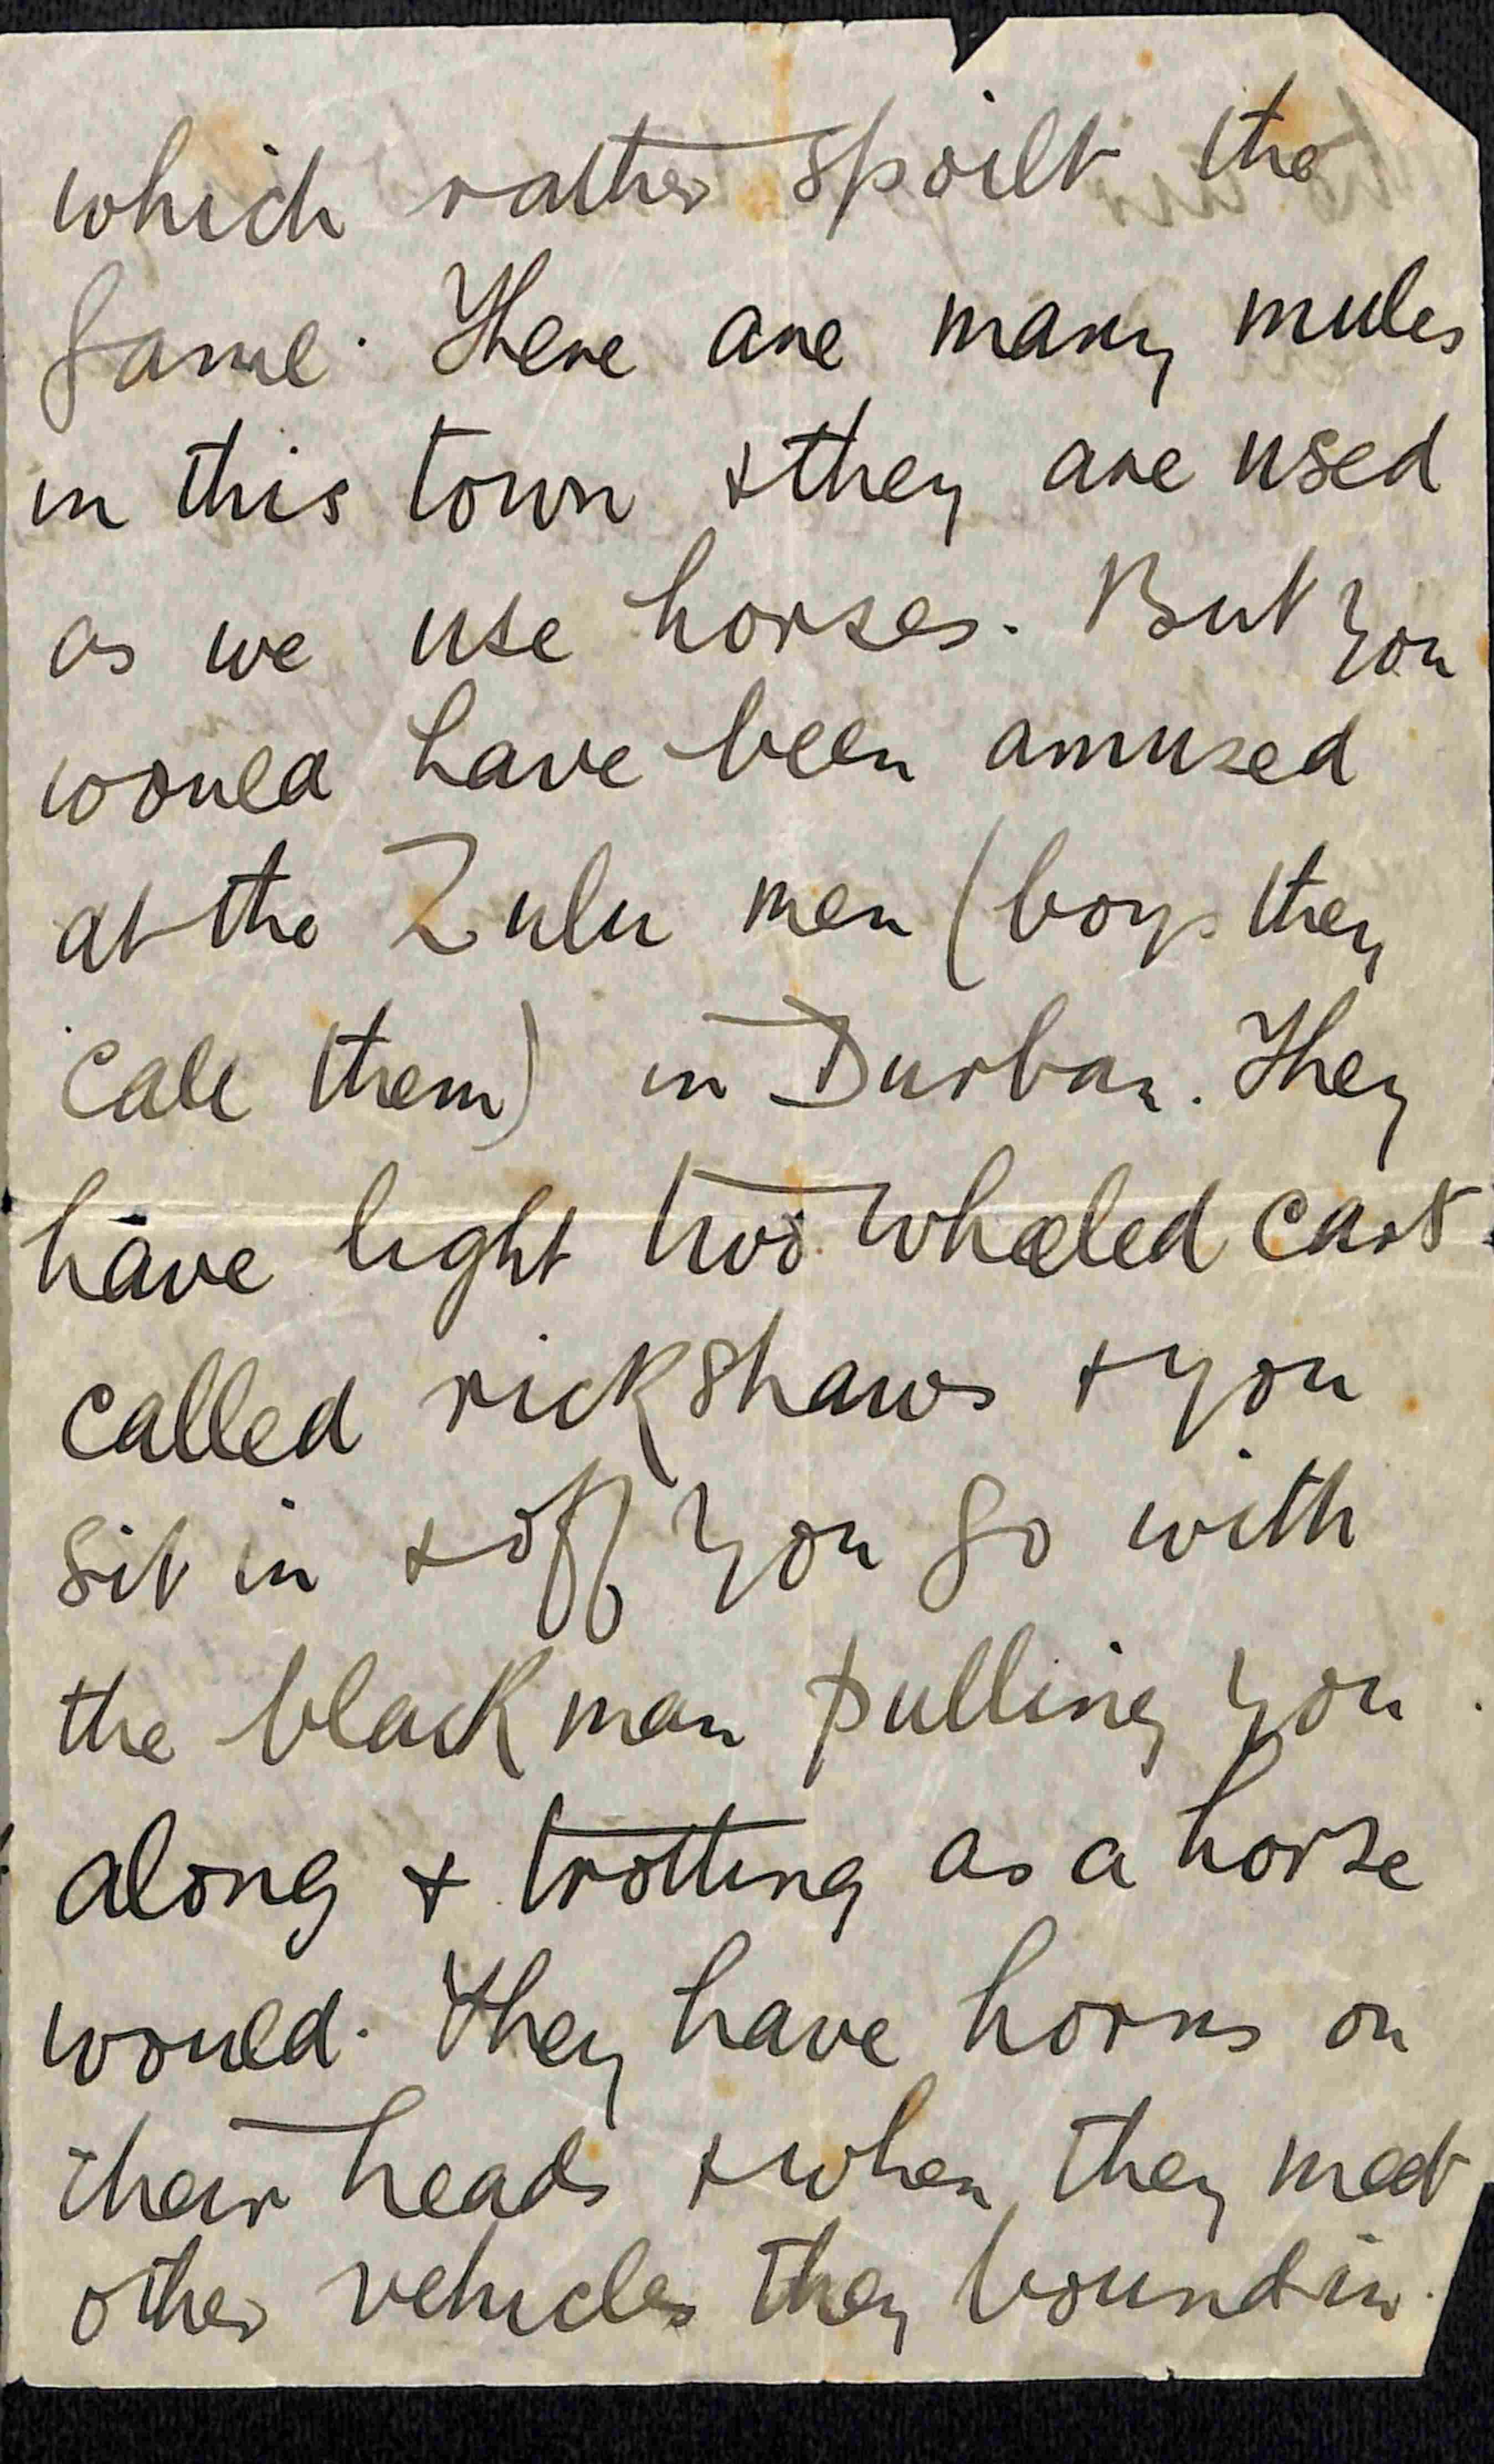 which rather spoilt the
game. There are many mules
in this town & they are used
as we use horses. But you
would have been amused
at the Zulu men (boys they
call them) in Durban. They
have light two wheeled carts
called rickshaws & you
sit in & off you go with
the black man pulling you
along & trotting as a horse
would. They have horns on
their heads & when they meet
other vehicles they bound in